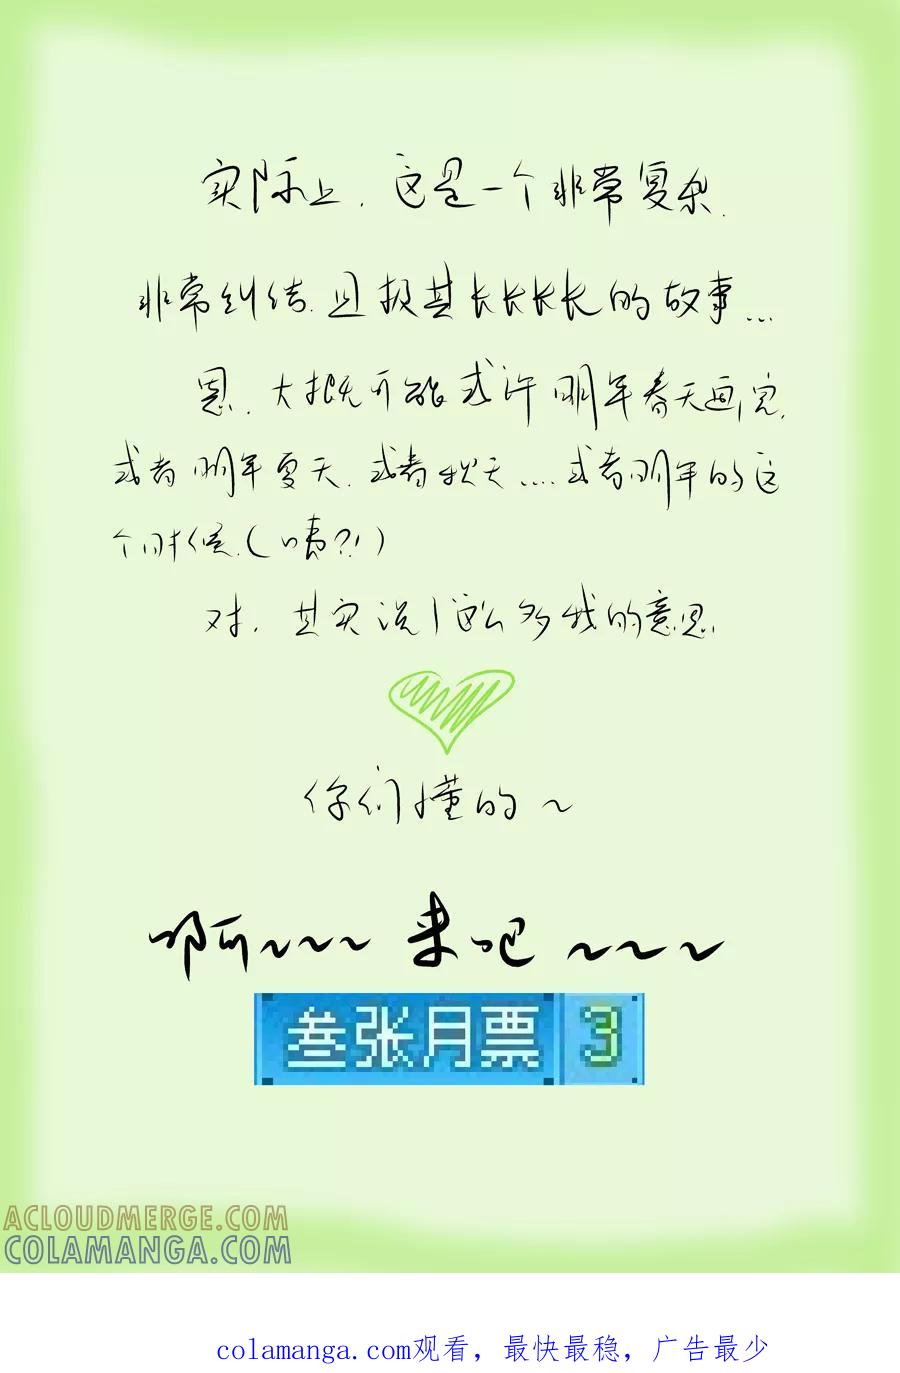 实际上，这是一个非常复杂，
非常纠结，且极其长长长长的故事…
恩，大概可能或许明年春天画完，
或者明年夏天，或者秋天....或者明年的这
个时候（咦?!）
对，其实说了这么多我的意思
你们懂的～
啊～～～ 来吧～～～
叁张月票 3
ACLOUDMERGE.COM
COLAMANGA.COM
colamanga.com观看，最快最稳，广告最少